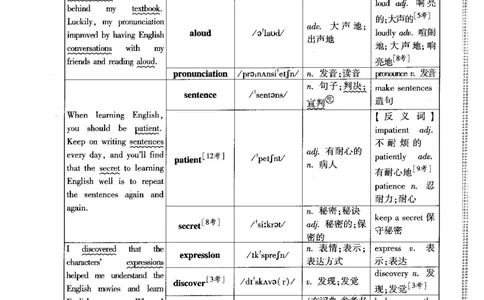 behind my textbook.
Luckily, my pronunciation
improved by having English
conversations with my
friends and reading aloud.
aloud
/əˈlaʊd/
adv. 大声地;
出声地
loud adj. 响亮
的;大声的[5考]
loudly adv. 喧闹
地;大声地;响
亮地[8考]
pronunciation
/prəˌnʌnsiˈeɪʃn/
n. 发音;读音
pronounce v. 发音
When learning English,
you should be patient.
Keep on writing sentences
every day, and you'll find
that the secret to learning
English well is to repeat
the sentences again and
again.
sentence
/ˈsentəns/
n. 句子;判决;
宣判
make sentences
造句
patient[12考]
/ˈpeɪʃnt/
adj. 有耐心的
n. 病人
【反义词】
impatient adj.
不耐烦的
patiently adv.
有耐心地[9考]
patience n. 忍
耐力;耐心
secret[8考]
/ˈsiːkrət/
n. 秘密;秘诀
adj. 秘密的;保
密的
keep a secret 保
守秘密
I discovered that the
characters' expressions
helped me understand the
English movies and learn
expression
/ɪkˈspreʃn/
n. 表情;表示;
表达方式
express v. 表
示;表达
discover[3考]
/dɪˈskʌvə(r)/
v. 发现;发觉
discovery n. 发
现;发觉[3考]